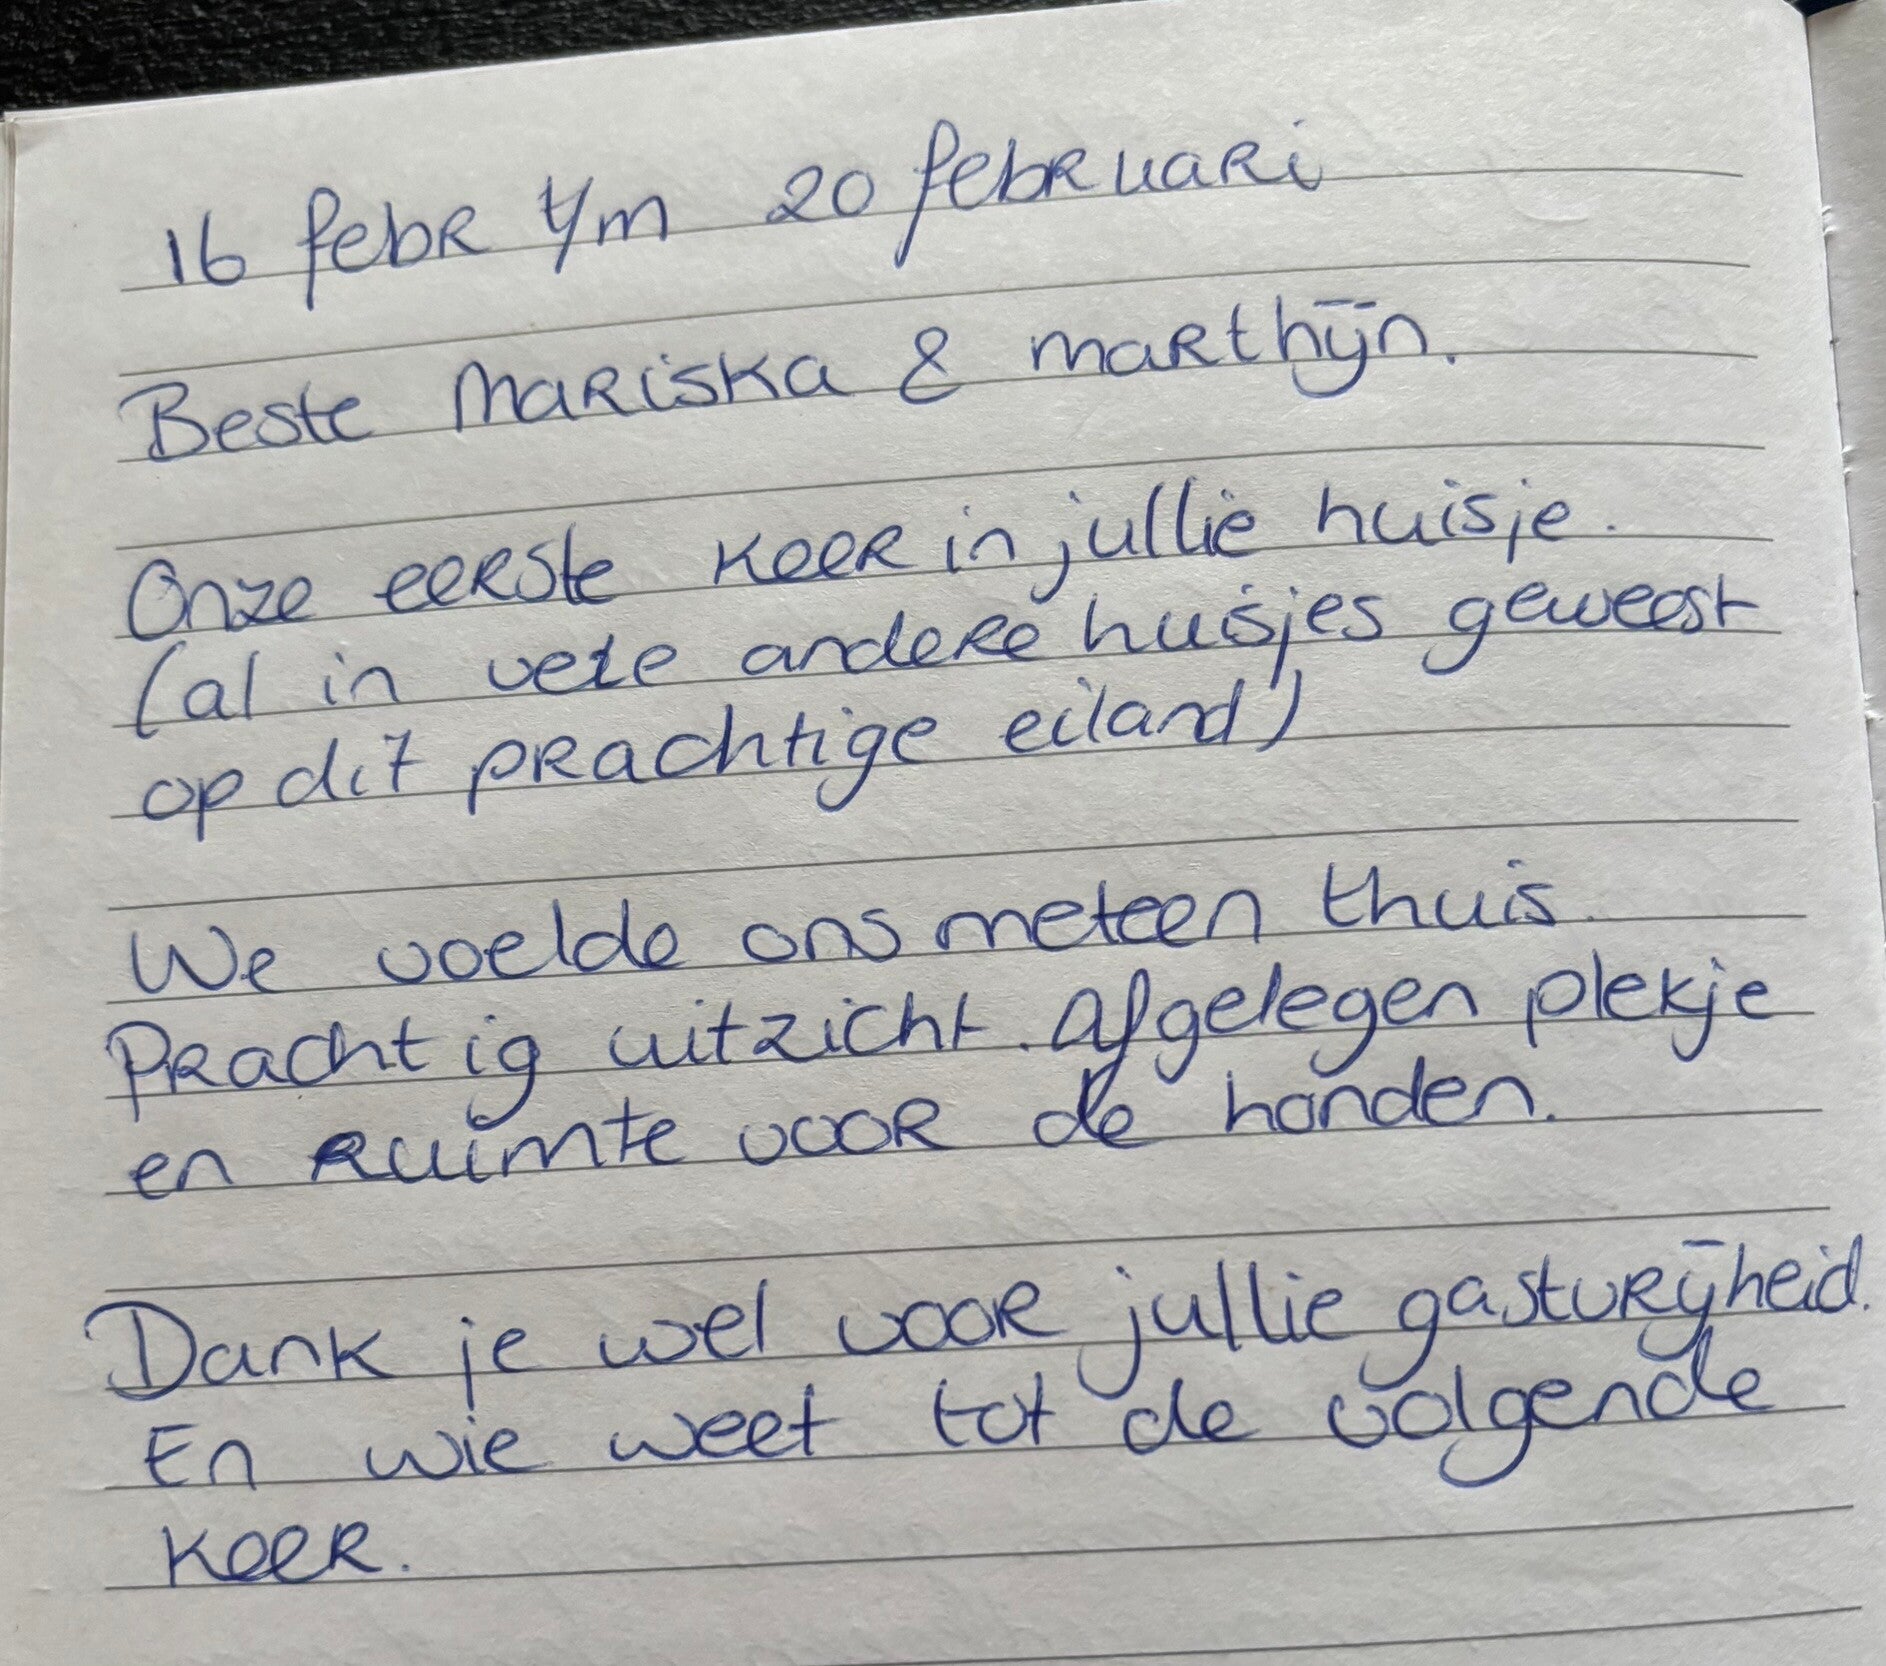 16 febr t/m 20 februari
Beste Mariska & Marthijn.
Onze eerste keer in jullie huisje.
(al in vele andere huisjes geweest
op dit prachtige eiland)
We voelde ons meteen thuis.
Prachtig uitzicht. Afgelegen plekje
en ruimte voor de honden.
Dank je wel voor jullie gastvrijheid.
En wie weet tot de volgende
keer.